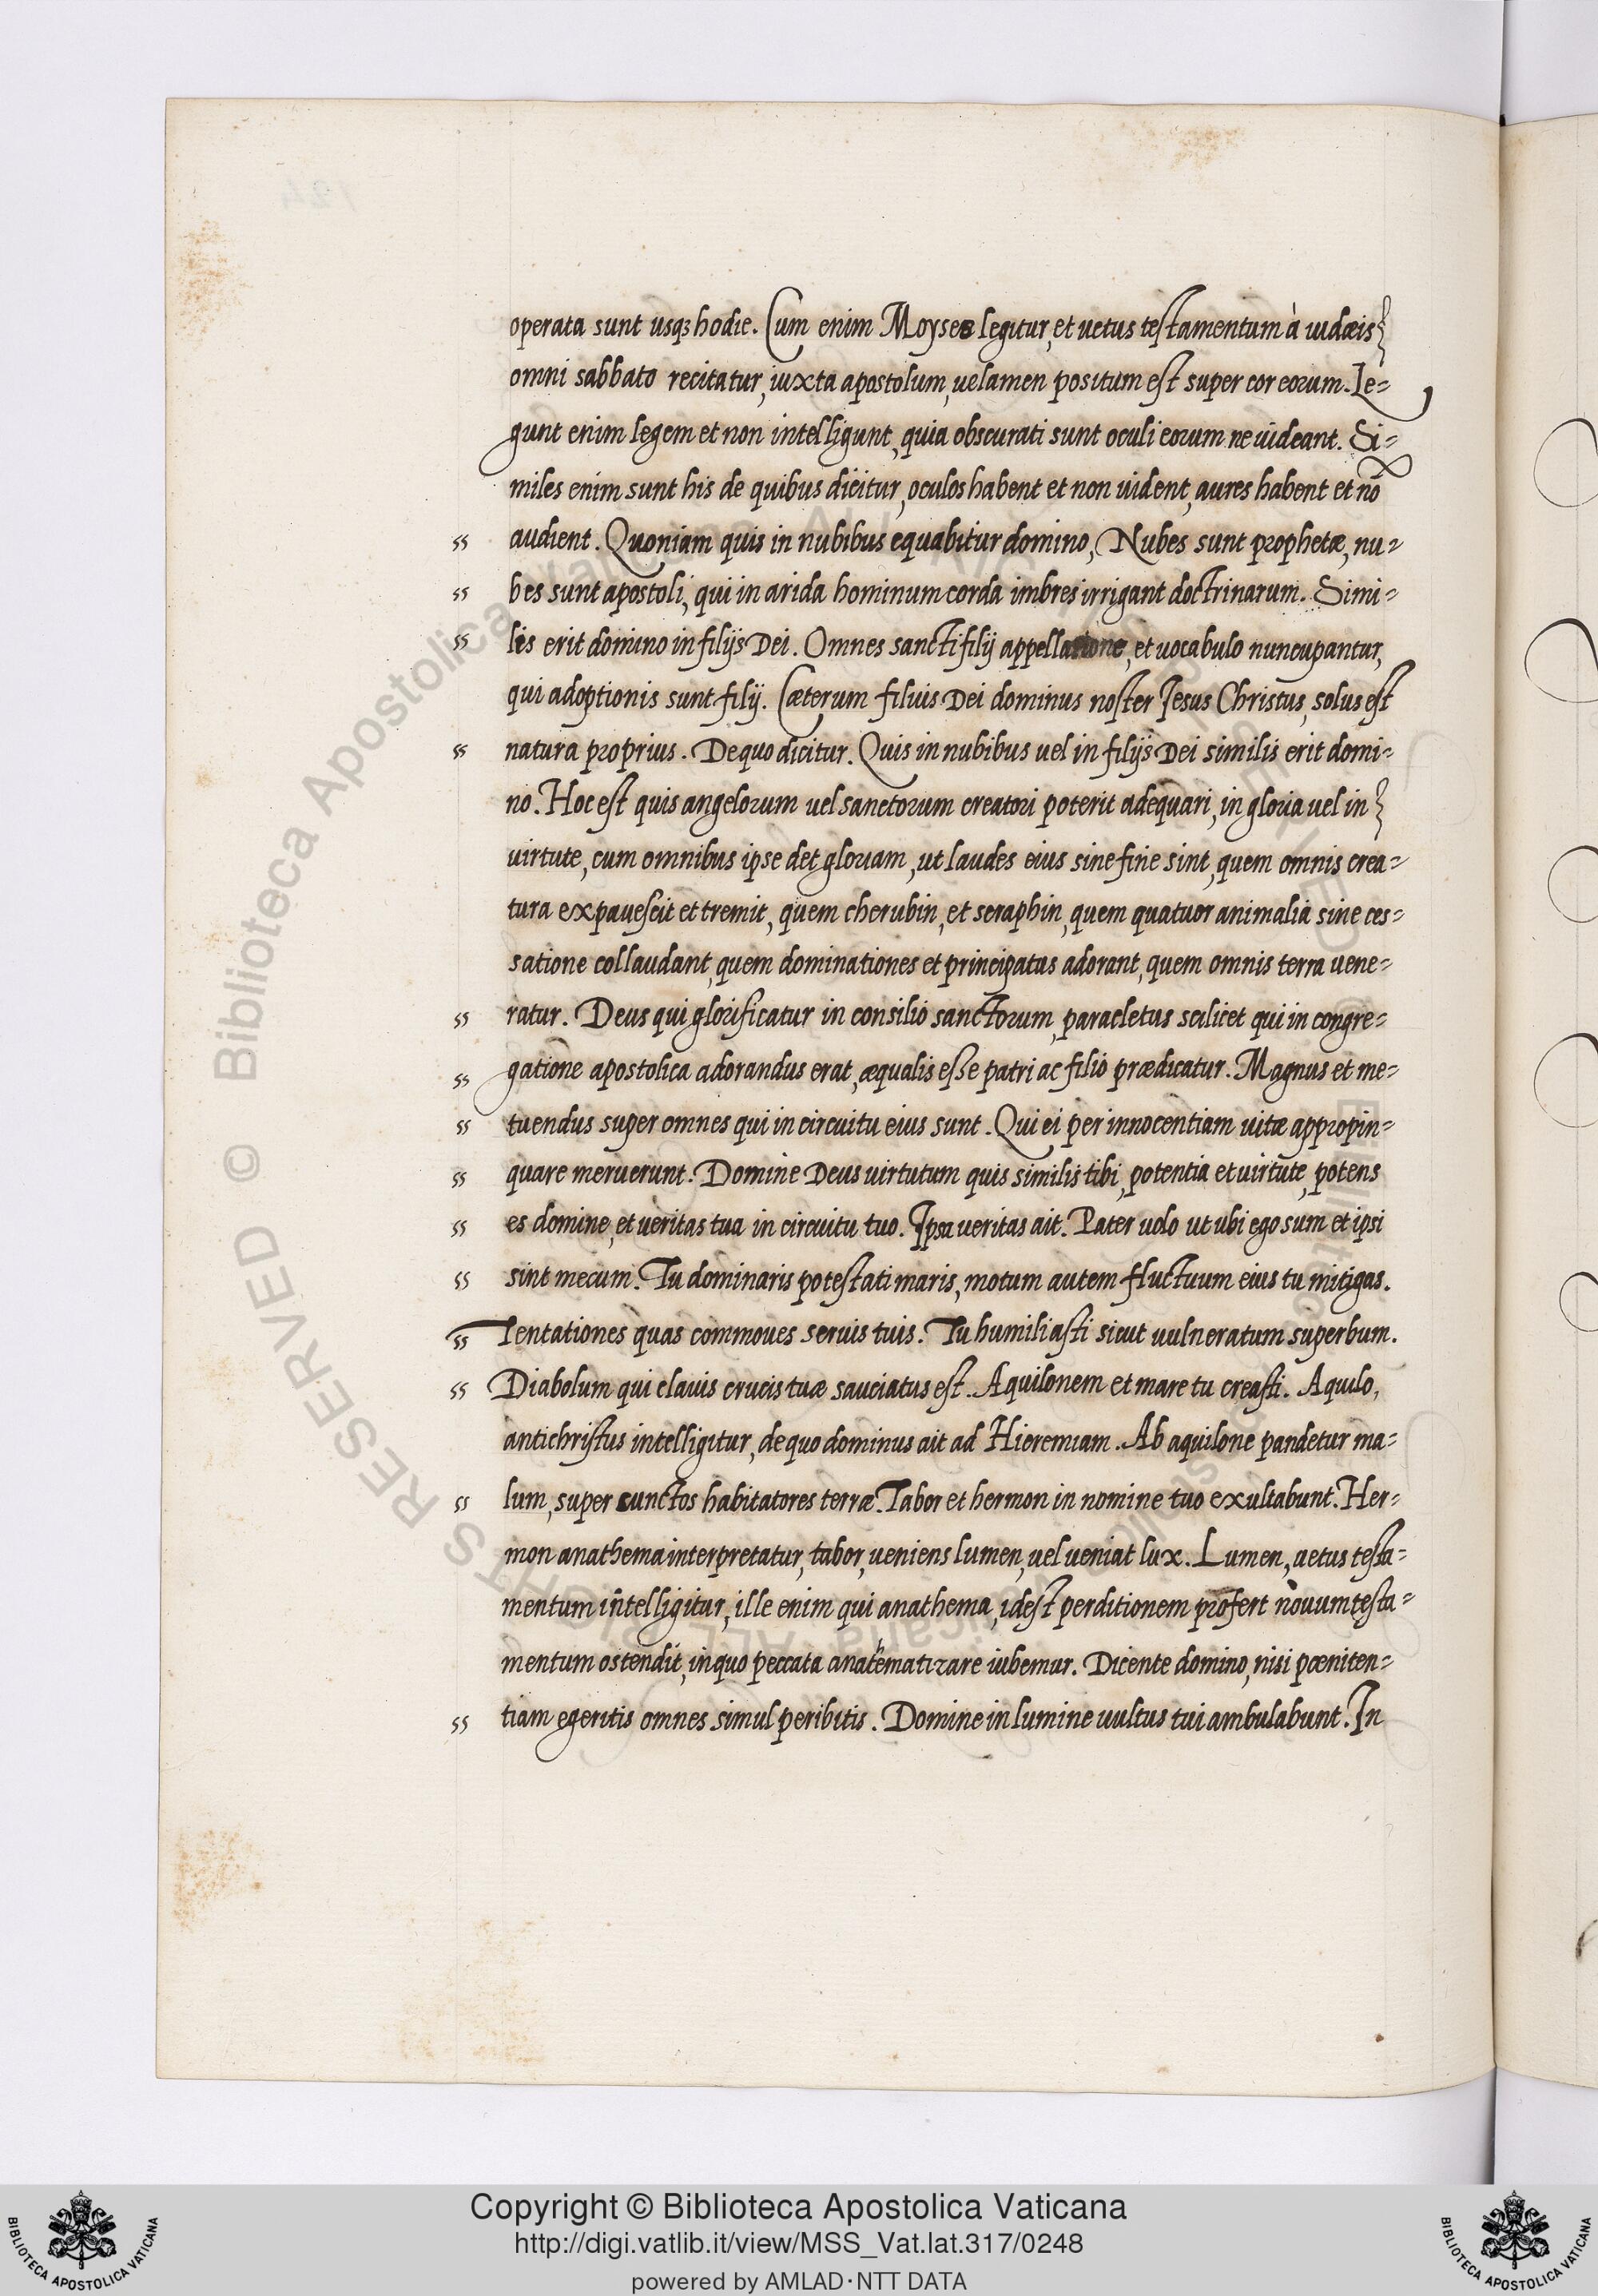 operata sunt usqꝫ hodie. Cum enim Moyses legitur, et uetus testamentum à iudæis
omni sabbato recitatur, iuxta apostolum, uelamen positum est super cor eorum. Le-
gunt enim legem et non intelligunt, quia obscurati sunt oculi eorum ne uideant. Si-
miles enim sunt his de quibus dicitur, oculos habent et non uident, aures habent et nō
" audient. Quoniam quis in nubibus equabitur domino, Nubes sunt prophetæ, nu-
" bes sunt apostoli, qui in arida hominum corda imbres irrigant doctrinarum. Simi-
" lis erit domino in filijs Dei. Omnes sancti filij appellatione, et uocabulo nuncupantur,
qui adoptionis sunt filij. Cæterum filius Dei dominus noster Jesus Christus, solus est
" natura proprius. De quo dicitur. Quis in nubibus uel in filijs Dei similis erit domi-
no. Hoc est quis angelorum uel sanctorum creatori poterit adequari, in gloria uel in
uirtute, cum omnibus ipse det gloriam, ut laudes eius sine fine sint, quem omnis crea-
tura expauescit et tremit, quem cherubin, et seraphin, quem quatuor animalia sine ces-
satione collaudant, quem dominationes et principatus adorant, quem omnis terra uene-
" ratur. Deus qui glorificatur in consilio sanctorum, paracletus scilicet qui in congre-
" gatione apostolica adorandus erat, æqualis esse patri ac filio prædicatur. Magnus et me-
" tuendus super omnes qui in circuitu eius sunt. Qui ei per innocentiam uitæ appropin-
" quare meruerunt. Domine Deus uirtutum quis similis tibi, potentia et uirtute, potens
" es domine, et ueritas tua in circuitu tuo. Ipsa ueritas ait. Pater uolo ut ubi ego sum et ipsi
" sint mecum. Tu dominaris potestati maris, motum autem fluctuum eius tu mitigas.
" Tentationes quas commoues seruis tuis. Tu humiliasti sicut uulneratum superbum.
" Diabolum qui clauis crucis tuæ sauciatus est. Aquilonem et mare tu creasti. Aquilo,
antichristus intelligitur, de quo dominus ait ad Hieremiam. Ab aquilone pandetur ma-
" lum, super cunctos habitatores terræ. Tabor et hermon in nomine tuo exultabunt. Her-
mon anathema interpretatur, tabor, ueniens lumen, uel ueniat lux. Lumen, uetus testa-
mentum intelligitur, ille enim qui anathema, idest perditionem profert nouum testa-
mentum ostendit, in quo peccata anathematizare iubemur. Dicente domino, nisi pœniten-
" tiam egeritis omnes simul peribitis. Domine in lumine uultus tui ambulabunt. In
© Biblioteca Apostolica Vaticana ALL RIGHTS RESERVED
Copyright © Biblioteca Apostolica Vaticana
http://digi.vatlib.it/view/MSS_Vat.lat.317/0248
powered by AMLAD·NTT DATA
BIBLIOTECA APOSTOLICA VATICANA
BIBLIOTECA APOSTOLICA VATICANA